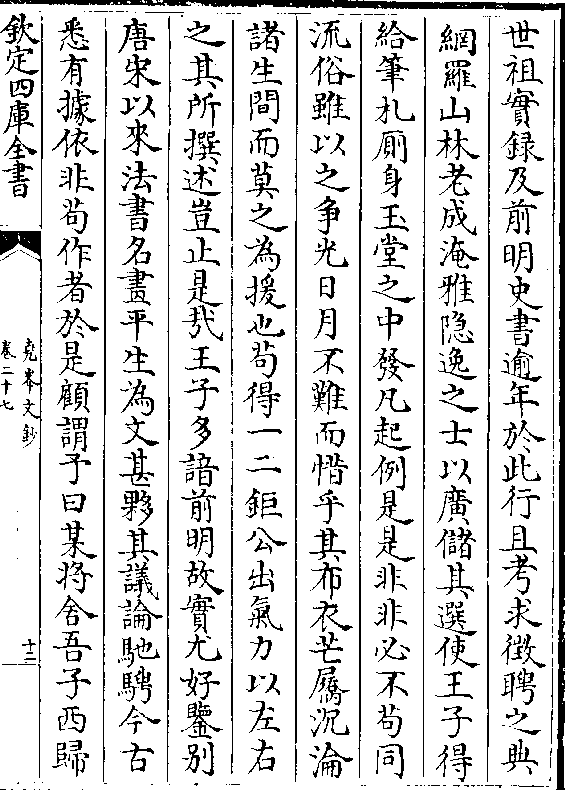 世祖實録及前明史書逾年於此行且考求徵聘之典
網羅山林老成淹雅隐逸之士以廣儲其選使王子得
給筆札厠身玉堂之中發凡起例是是非非必不苟同
流俗雖以之争光日月不難而惜乎其布衣芒屩沉淪
諸生間而莫之為援也苟得一二鉅公出氣力以左右
之其所撰述豈止是㢤王子多諳前明故實尤好鑒别
唐宋以來法書名畫平生為文甚夥其議論馳騁今古
悉有據依非苟作者於是顧謂予曰某将舍吾子西歸
欽定四庫全書
堯峯文鈔
卷二十七
十二